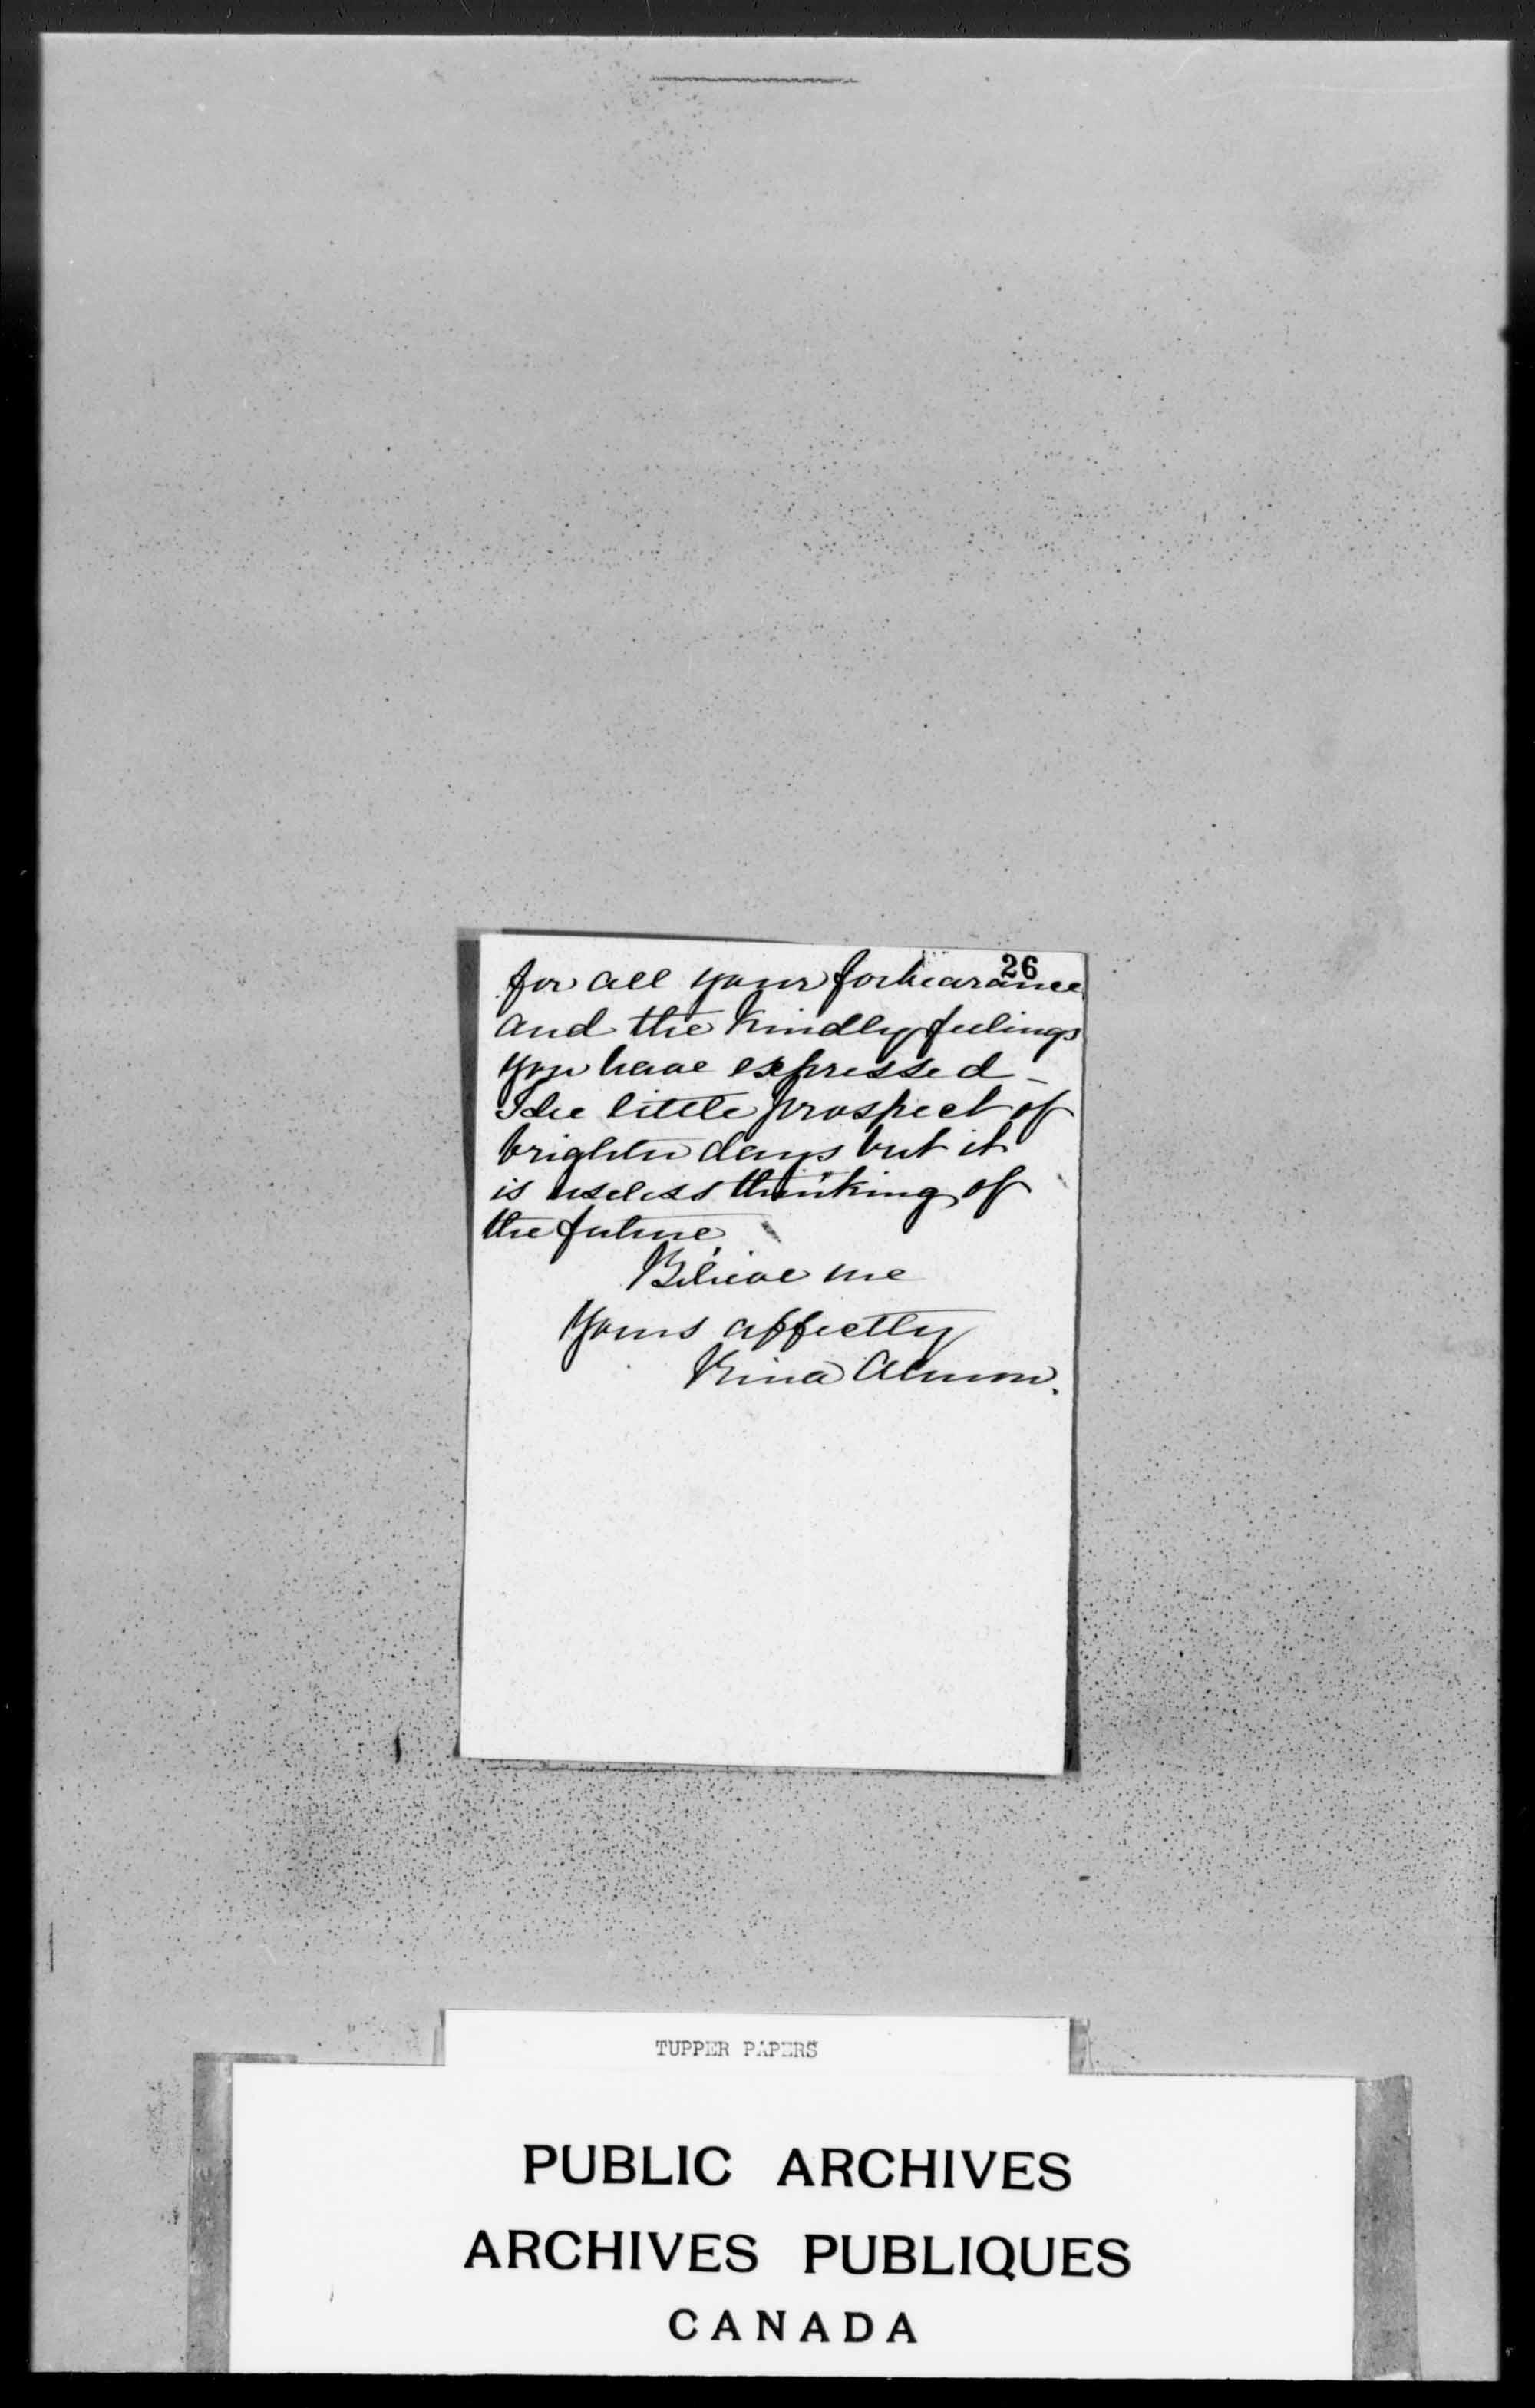 26
for all your forbearance
and the kindly feelings
you have expressed -
I see little prospect of
brighter days but it
is useless thinking of
the future
Believe me
Yours affectly
Almon.
TUPPER PAPERS
PUBLIC ARCHIVES
ARCHIVES PUBLIQUES
CANADA